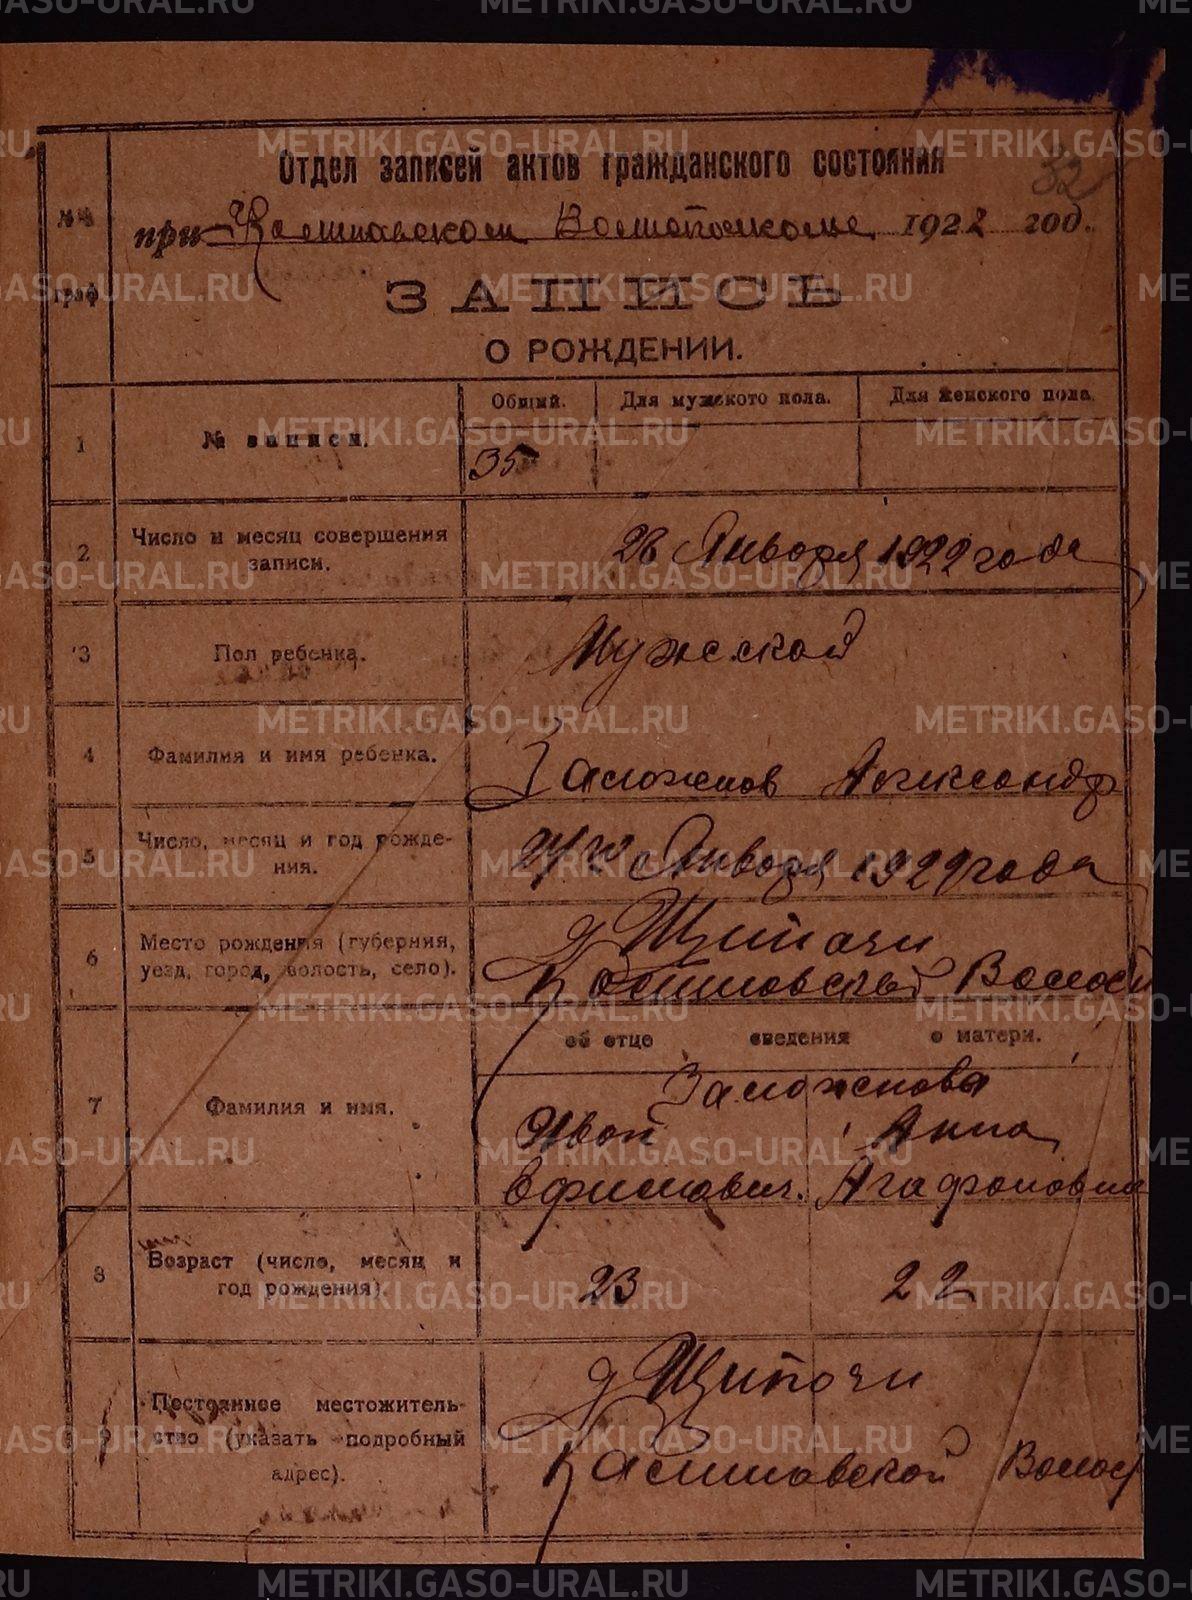 METRIKI.GASO-URAL.RU
Отдел записей актов гражданского состояния
32
№№ граф
при Волисполкоме 1922 год.
ЗАПИСЬ
О РОЖДЕНИИ.
1 № записи. Общий. Для мужского пола. Для женского пола.
35
2 Число и месяц совершения записи. 28 Января 1922 года
3 Пол ребенка. Мужской
4 Фамилия и имя ребенка. Александр
5 Число, месяц и год рождения. Января 1922 года
6 Место рождения (губерния, уезд, город, волость, село). д Щипачи
Волост
об отце сведения о матери.
7 Фамилия и имя.
Иван Анна
Ефимович. Агафоновна
8 Возраст (число, месяц и год рождения). 23 22
Постоянное местожительство (указать подробный адрес). д Щипачи
Волост